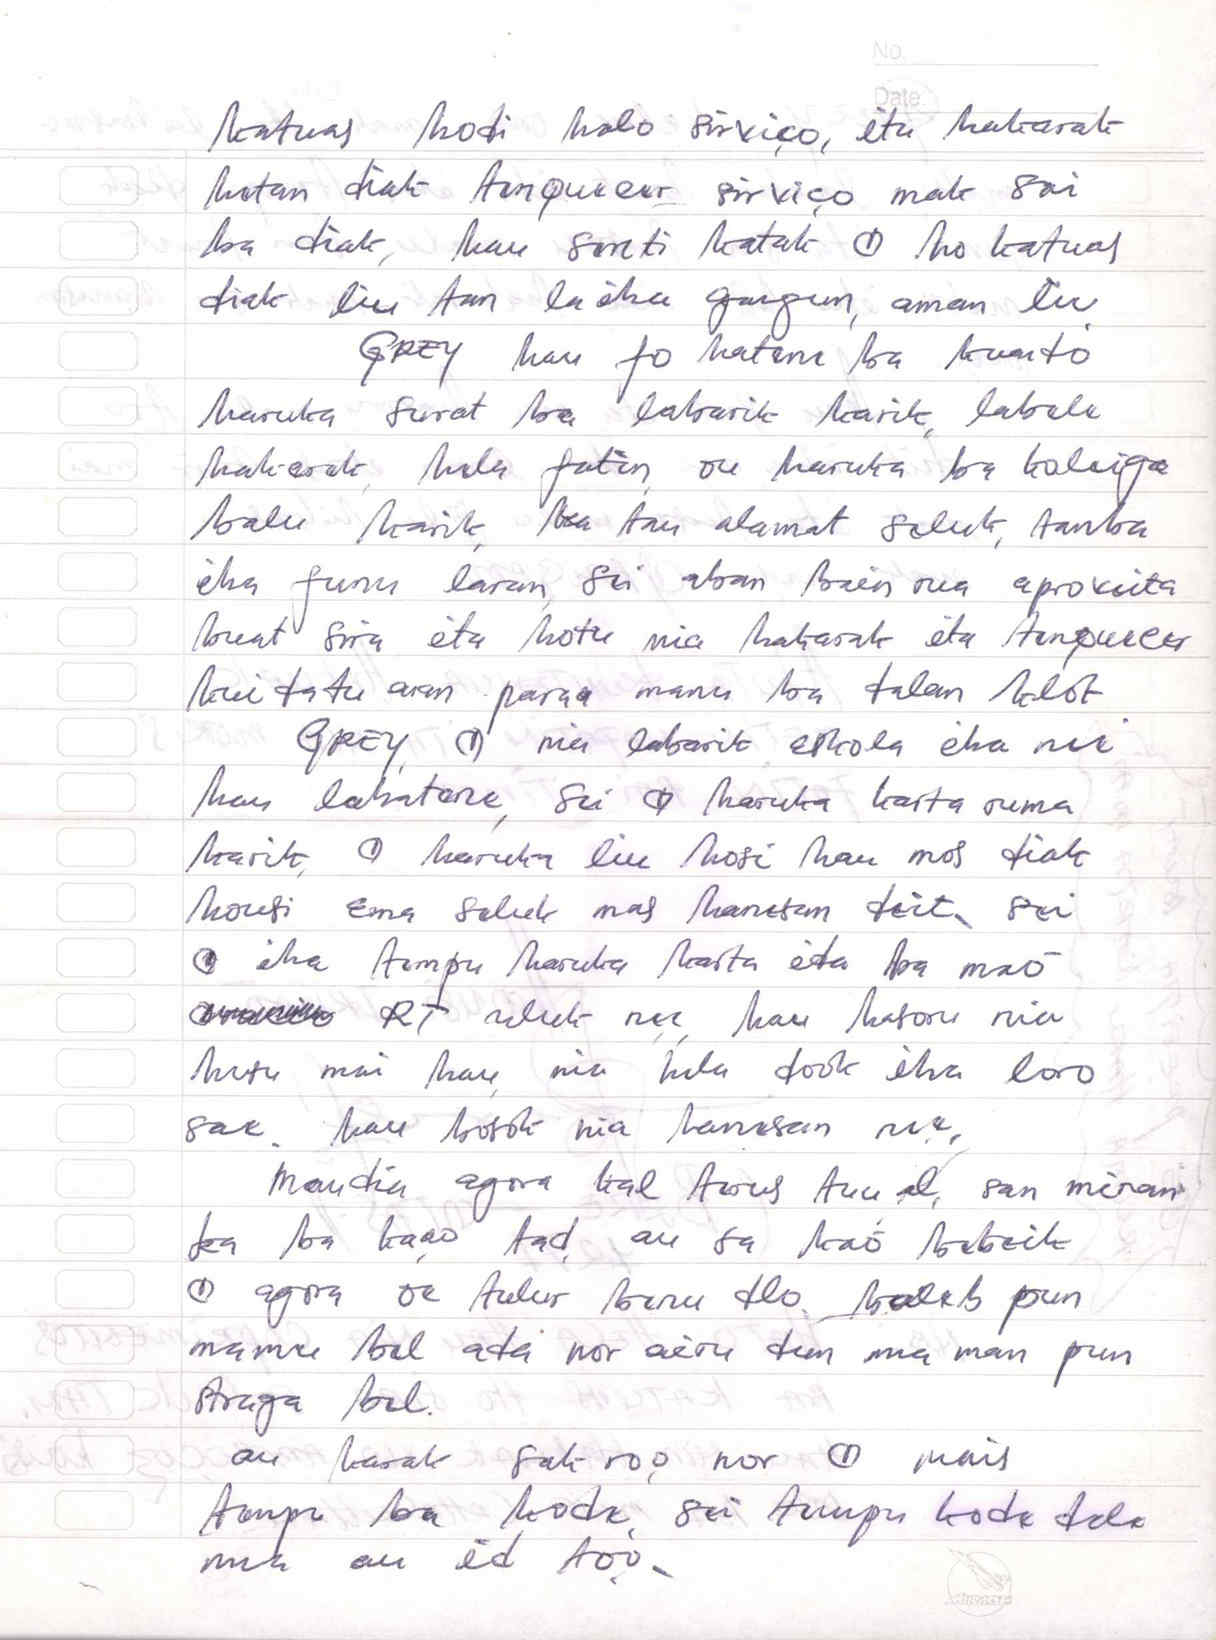 No.
Date.
katuas hodi halo sirviço, ita hakarak
hetan diak tenquecer sirviço mak sai
ba diak, hau senti katak ① ho katuas
diak liu tan la iha gangun, aman liu.
GREY hau fo hatene ba kuando
haruka surat ba labarik karik, labele
hakerak, hela fatin, ou haruka ba koleiga
balu karik, ba tau alamat seluk, tanba
iha funu laran, sei aban bain rua aproveita
buat sira ita hotu nia hakarak ita tenquecer
kuidatu aran para manu ba dalan klot
GREY, ① nia labarik eskola iha ne'e
hau lahatene, sei ① haruka karta ruma
karik, ① haruka liu hosi hau mos diak
housi ema seluk mas hanesan deit. sei
① iha tempu haruka karta ida ba maõ
RT seluk ne'e, hau hasoru nia
husu mai hau, nia hela dook iha loro
sae. hau bosok nia hanesan ne'e,
Maudia agora kal turus tuu el, san miran
ka ba kaço tad, au sa kaõ bebeik
① agora oe tulur beru dlo. baleb pun
mamu bel ada nor aeru dun ma man pun
straga bel.
au karak sak roo nor ① mais
tempu ba hode, sei tempu kode dele
mua au ed too.